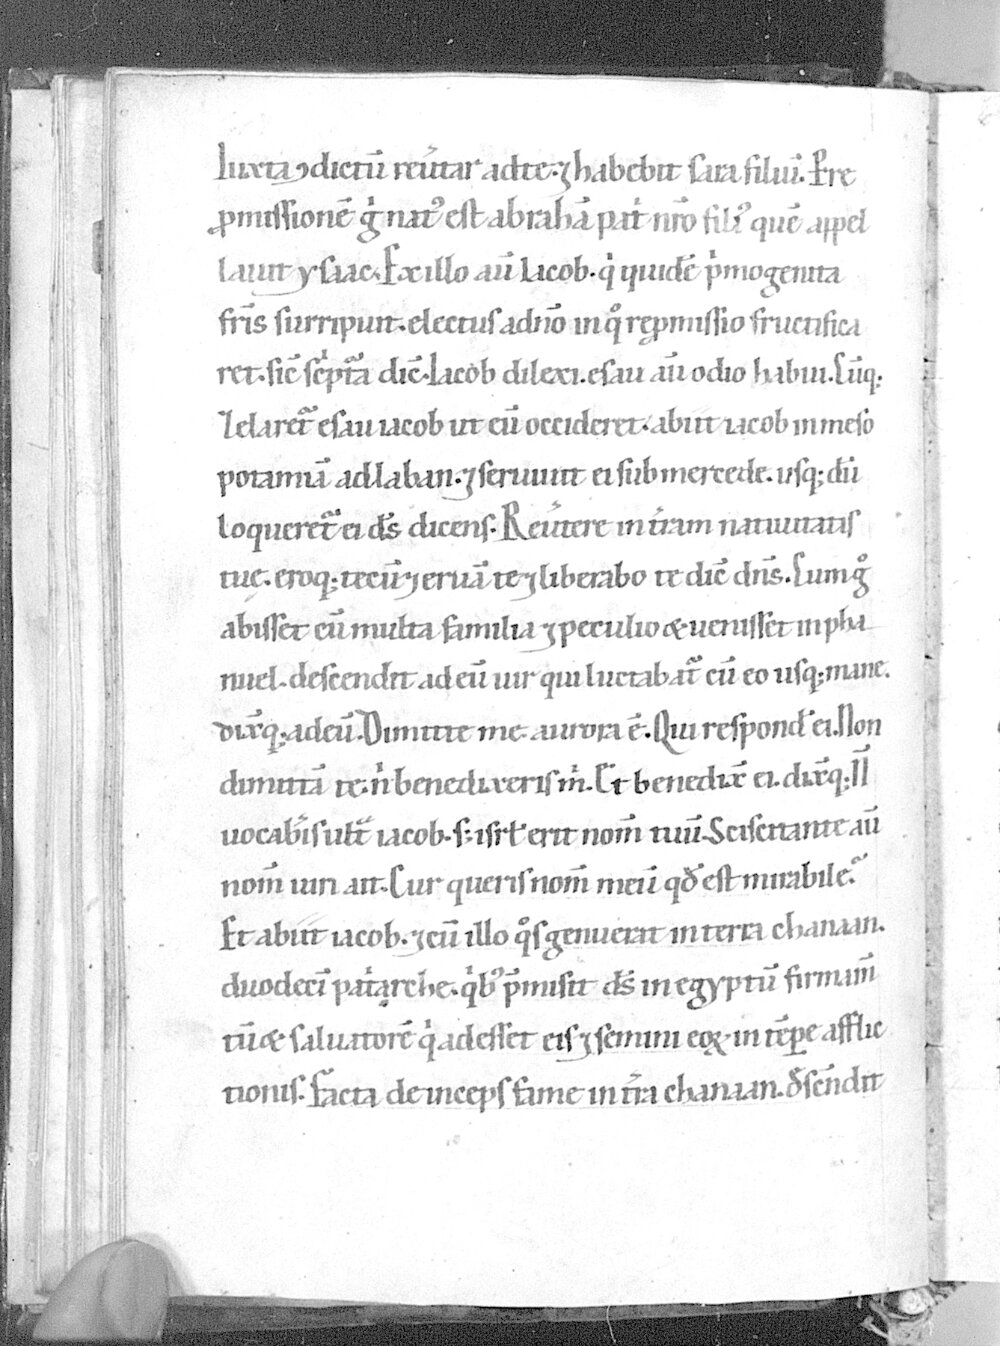 Iuxta ꝯdictū reūtar ad te. ⁊ habebit sara filiū. P̱ re
ꝓmissionē gͥ natꝰ est abrahā patͥ nr̄o filiꝰ quē appel
lauit ysaac. Ex illo aū Iacob. qͥ quidē pͥmogenita
fr̄is surripuit. electus a dn̄o in qͦ reꝓmissio fructifica
ret. sic̄ scͥptᷓa dic̄. Iacob dilexi. esau aū odio habui. Cūq;
zelaretᷓ esau iacob ut eū occideret. abiit iacob in meso
potamiā ad laban. ⁊ seruiuit ei sub mercede. usq; dū
loqueretᷓ ei ds̄ dicens. Reūtere in tr̄am natiuitatis
tuę. eroq; tecū ⁊ eruā te ⁊ liberabo te dic̄ dn̄s. Cum gͦ
abisset cū multa familia ⁊ peculio & uenisset in pha
nuel. descendit ad eū uir qui luctabatᷓ cū eo usq; mane.
dix̄q; ad eū. Dimitte me. aurora ē. Qui respond̄ ei. Non
dimittā te. nͥ benedixeris m̄. Et benedix̄ ei. dix̄q; N̄
uocab̄is ultᷓ iacob. s; isrł erit nom̄ tuū. Sciscitante aū
nom̄ uiri ait. Cur queris nom̄ meū qd̄ est mirabile?
Et abiit iacob. ⁊ cū illo qͦs genuerat in terra chanaan.
duodecī patͥarche. qͥbꝰ p̄misit ds̄ in egyptū firmam̄
tū & saluatorē qͥ adesset eis ⁊ semini eoꝝ in tēꝑe afflic
tionis. Fc̄a de inceps fame in tr̄a chanaan. d̄scēndit